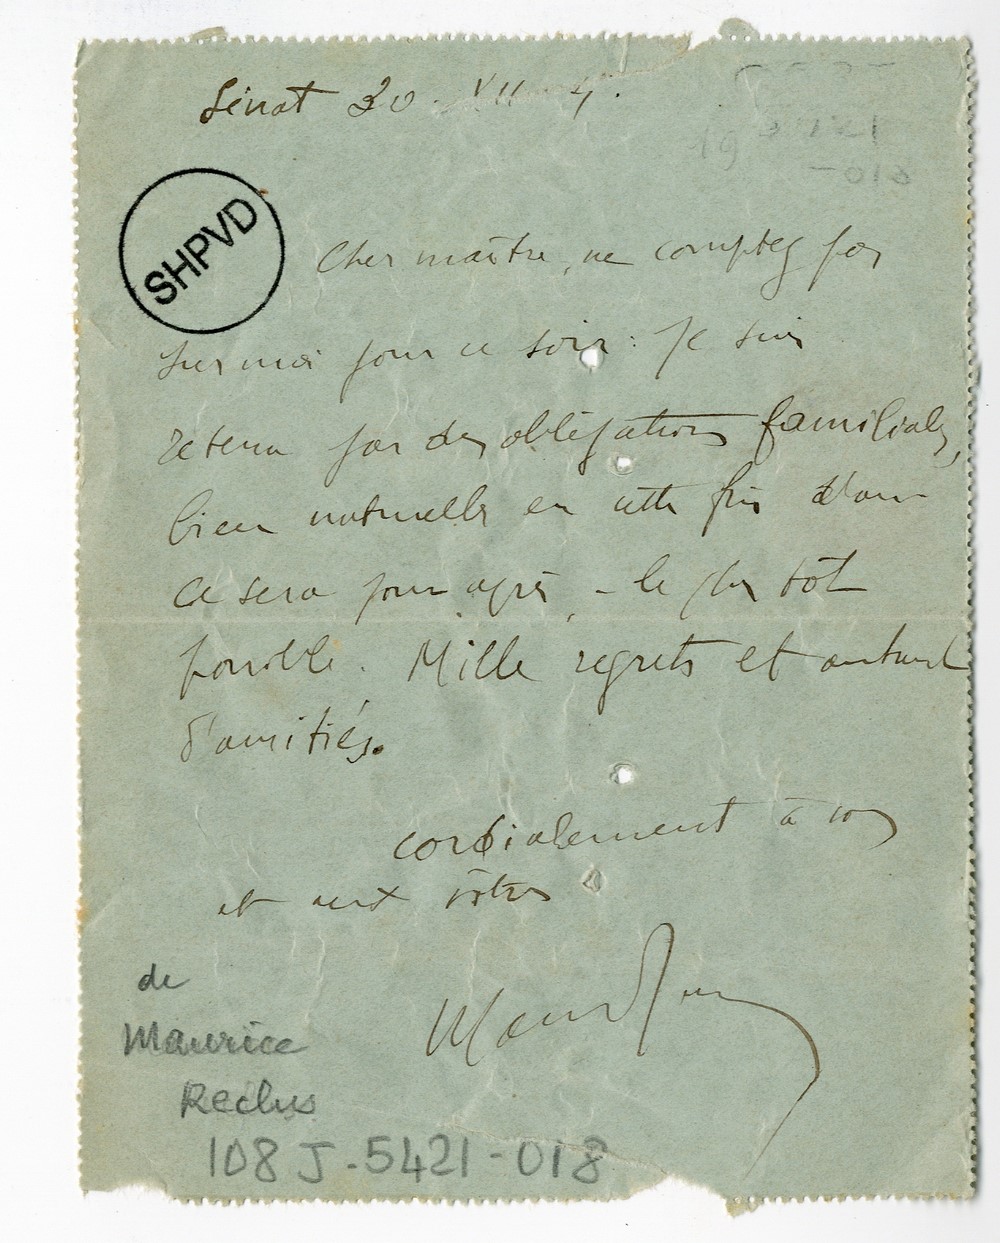 Sénat 30. XII
SHPVD
Cher maître, ne comptez pas
sur moi pour ce soir : Je suis
retenu par des obligations familiales,
bien naturelles en cette fin d'an
Ce sera pour après, - le plus tôt
possible. Mille regrets et autant
d'amitiés.
cordialement à vous
et aux vôtres
de
Maurice
Reclus
108 J-5421-018